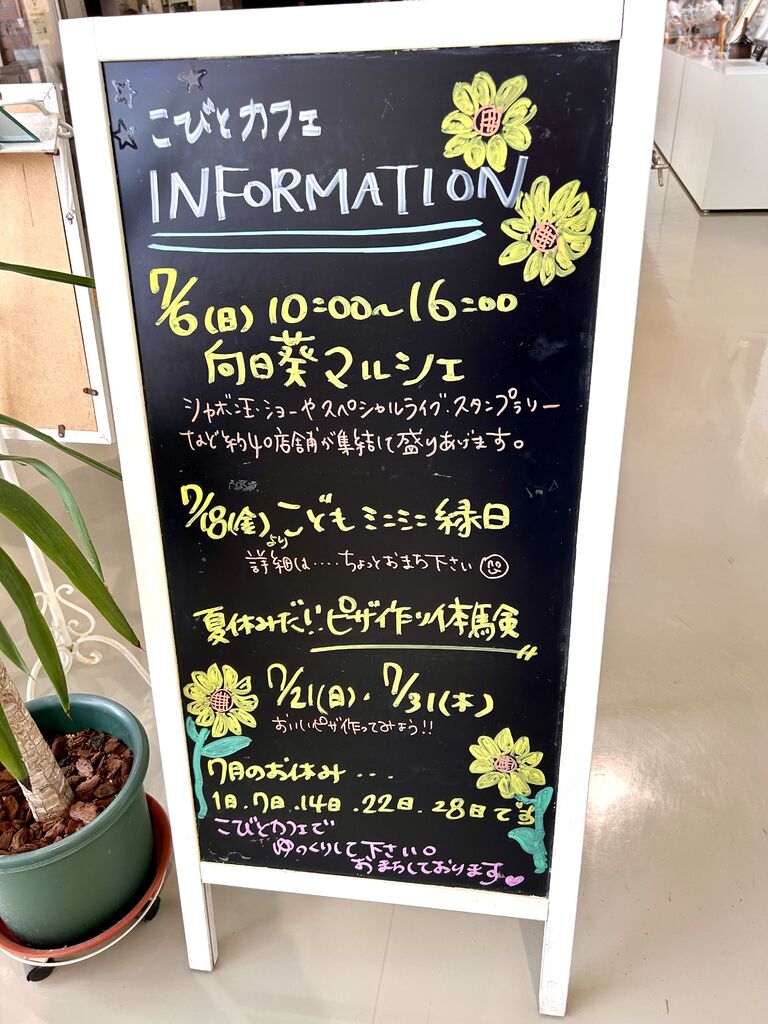 こびとカフェ
INFORMATION
7/6(日) 10:00〜16:00
向日葵マルシェ
シャボン玉・ショーやスペシャルライブ・スタンプラリー
など約40店舗が集結して盛りあげます。
7/18(金)より こどもミニミニ縁日
詳細は‥‥ちょっとおまち下さい
夏休みだ!!ピザ作り体験
7/21(日)・7/31(木)
おいしいピザ作ってみよう!!
7月のお休み・・・
1日.7日.14日.22日.28日です
こびとカフェで
ゆっくりして下さい。
おまちしております♥